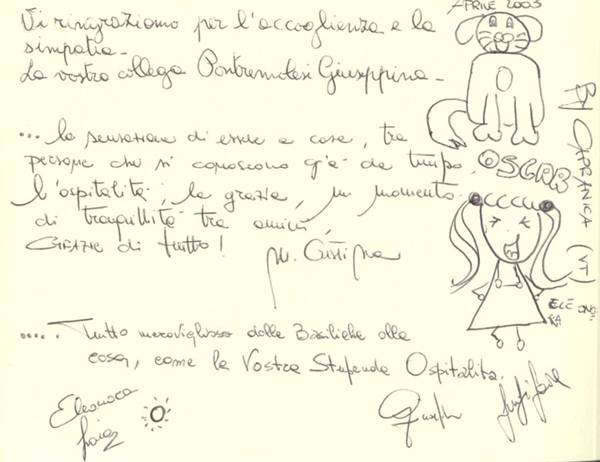 APRILE 2003
Vi ringraziamo per l'accoglienza e la
simpatia.
La vostra collega Pontremolesi Giuseppina.
... la sensazione di essere a casa, tra
persone che si conoscono già da tempo.
l'ospitalità, la grazia, un momento
di tranquillità tra amici,
GRAZIE di tutto!
M. Cristina
OSCAR
BY CAPRANICA (VT)
ELEONO
RA
..... Tutto meraviglioso dalle Basiliche alla
cosa, come la Vostra Stupenda Ospitalità.
Eleonora